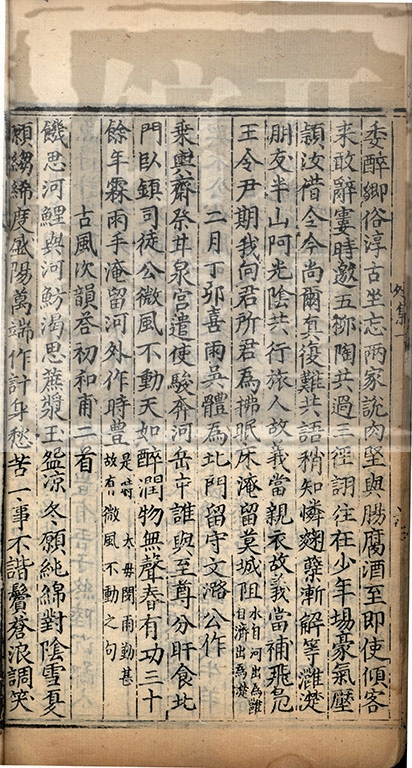 委醉鄉俗淳古坐忘兩家說肉堅與腸腐酒至即使傾客
來敢辭寠時邀五柳陶共過三徑詡往在少年場豪氣壓
潁汝惜全今尚爾真復難共語稍知憐麴糵漸解等灉濋
朋友半山阿光陰共行旅人故義當親衣故義當補飛鳧
王令尹期我向君所君為拂眠床淹留莫城阻水自河出為灉自濟出為濋
二月丁卯喜雨吳體為北門留守文潞公作
乘輿齋祭甘泉宮遣使駿奔河岳中誰與至尊分旰食北
門臥鎮司徒公微風不動天如醉潤物無聲春有功三十
餘年霖雨手淹留河外作時豐是時大毋閔雨勤甚故有微風不動之句
古風次韻荅初和甫二首
饑思河鯉與河魴渴思蔗漿玉盌涼冬願純綿對陰雪夏
願縐絺度盛陽萬端作計身愁苦一事不諧鬢蒼浪調笑
外集一